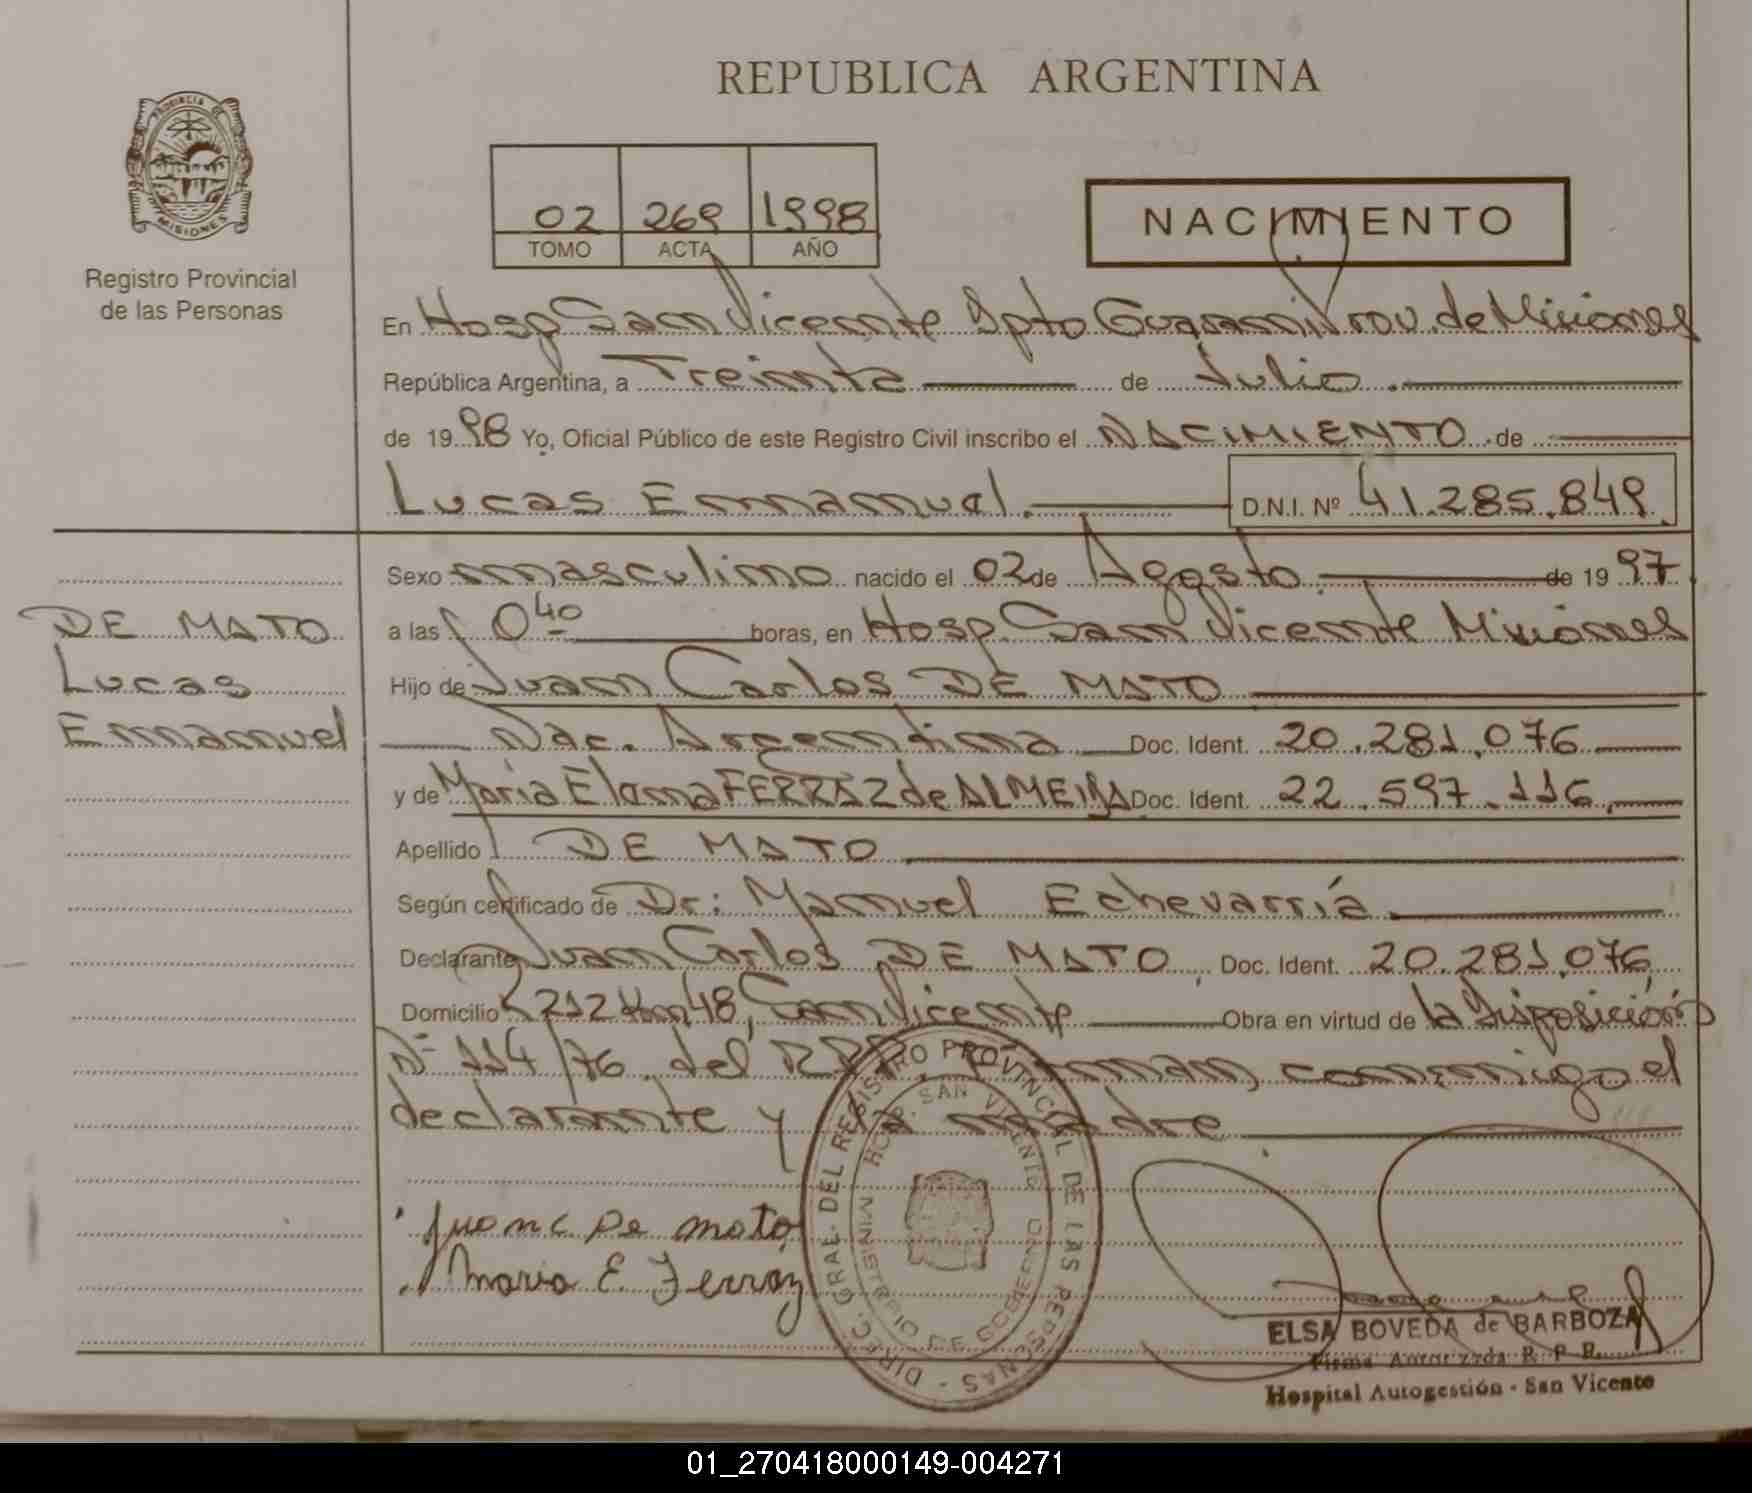 REPUBLICA ARGENTINA
PROVINCIA DE
MISIONES
Registro Provincial
de las Personas
02 269 1998
TOMO ACTA AÑO
NACIMIENTO
En Hosp San Vicente Dpto Guaraní Prov. de Misiones
República Argentina, a Treinta de Julio
de 1998 Yo, Oficial Público de este Registro Civil inscribo el NACIMIENTO de
Lucas Emmanuel D.N.I. Nº 41.285.849
Sexo masculino nacido el 02 de Agosto de 1997
DE MATO
Lucas
Emmanuel
a las 0 40 horas, en Hosp. San Vicente Misiones
Hijo de Juan Carlos DE MATO
Nac. Argentina Doc. Ident. 20.281.076
y de María Elena FERRAZ de ALMEIDA Doc. Ident. 22.597.116
Apellido DE MATO
Según certificado de Dr: Manuel Echevarría
Declarante Juan Carlos DE MATO Doc. Ident. 20.281.076
Domicilio 212 Km 48, San Vicente Obra en virtud de la Disposición
Nº 114/76 del RPP. Firman conmigo el
declarante y la madre
Juan C De mato
Maria E. Ferraz
DIREC. GRAL. DEL REGISTRO PROVINCIAL DE LAS PERSONAS
HOSP. SAN VICENTE
MINISTERIO DE GOBIERNO
ELSA BOVEDA de BARBOZA
Firma Autorizada R. P. P.
Hospital Autogestión - San Vicente
01_270418000149-004271